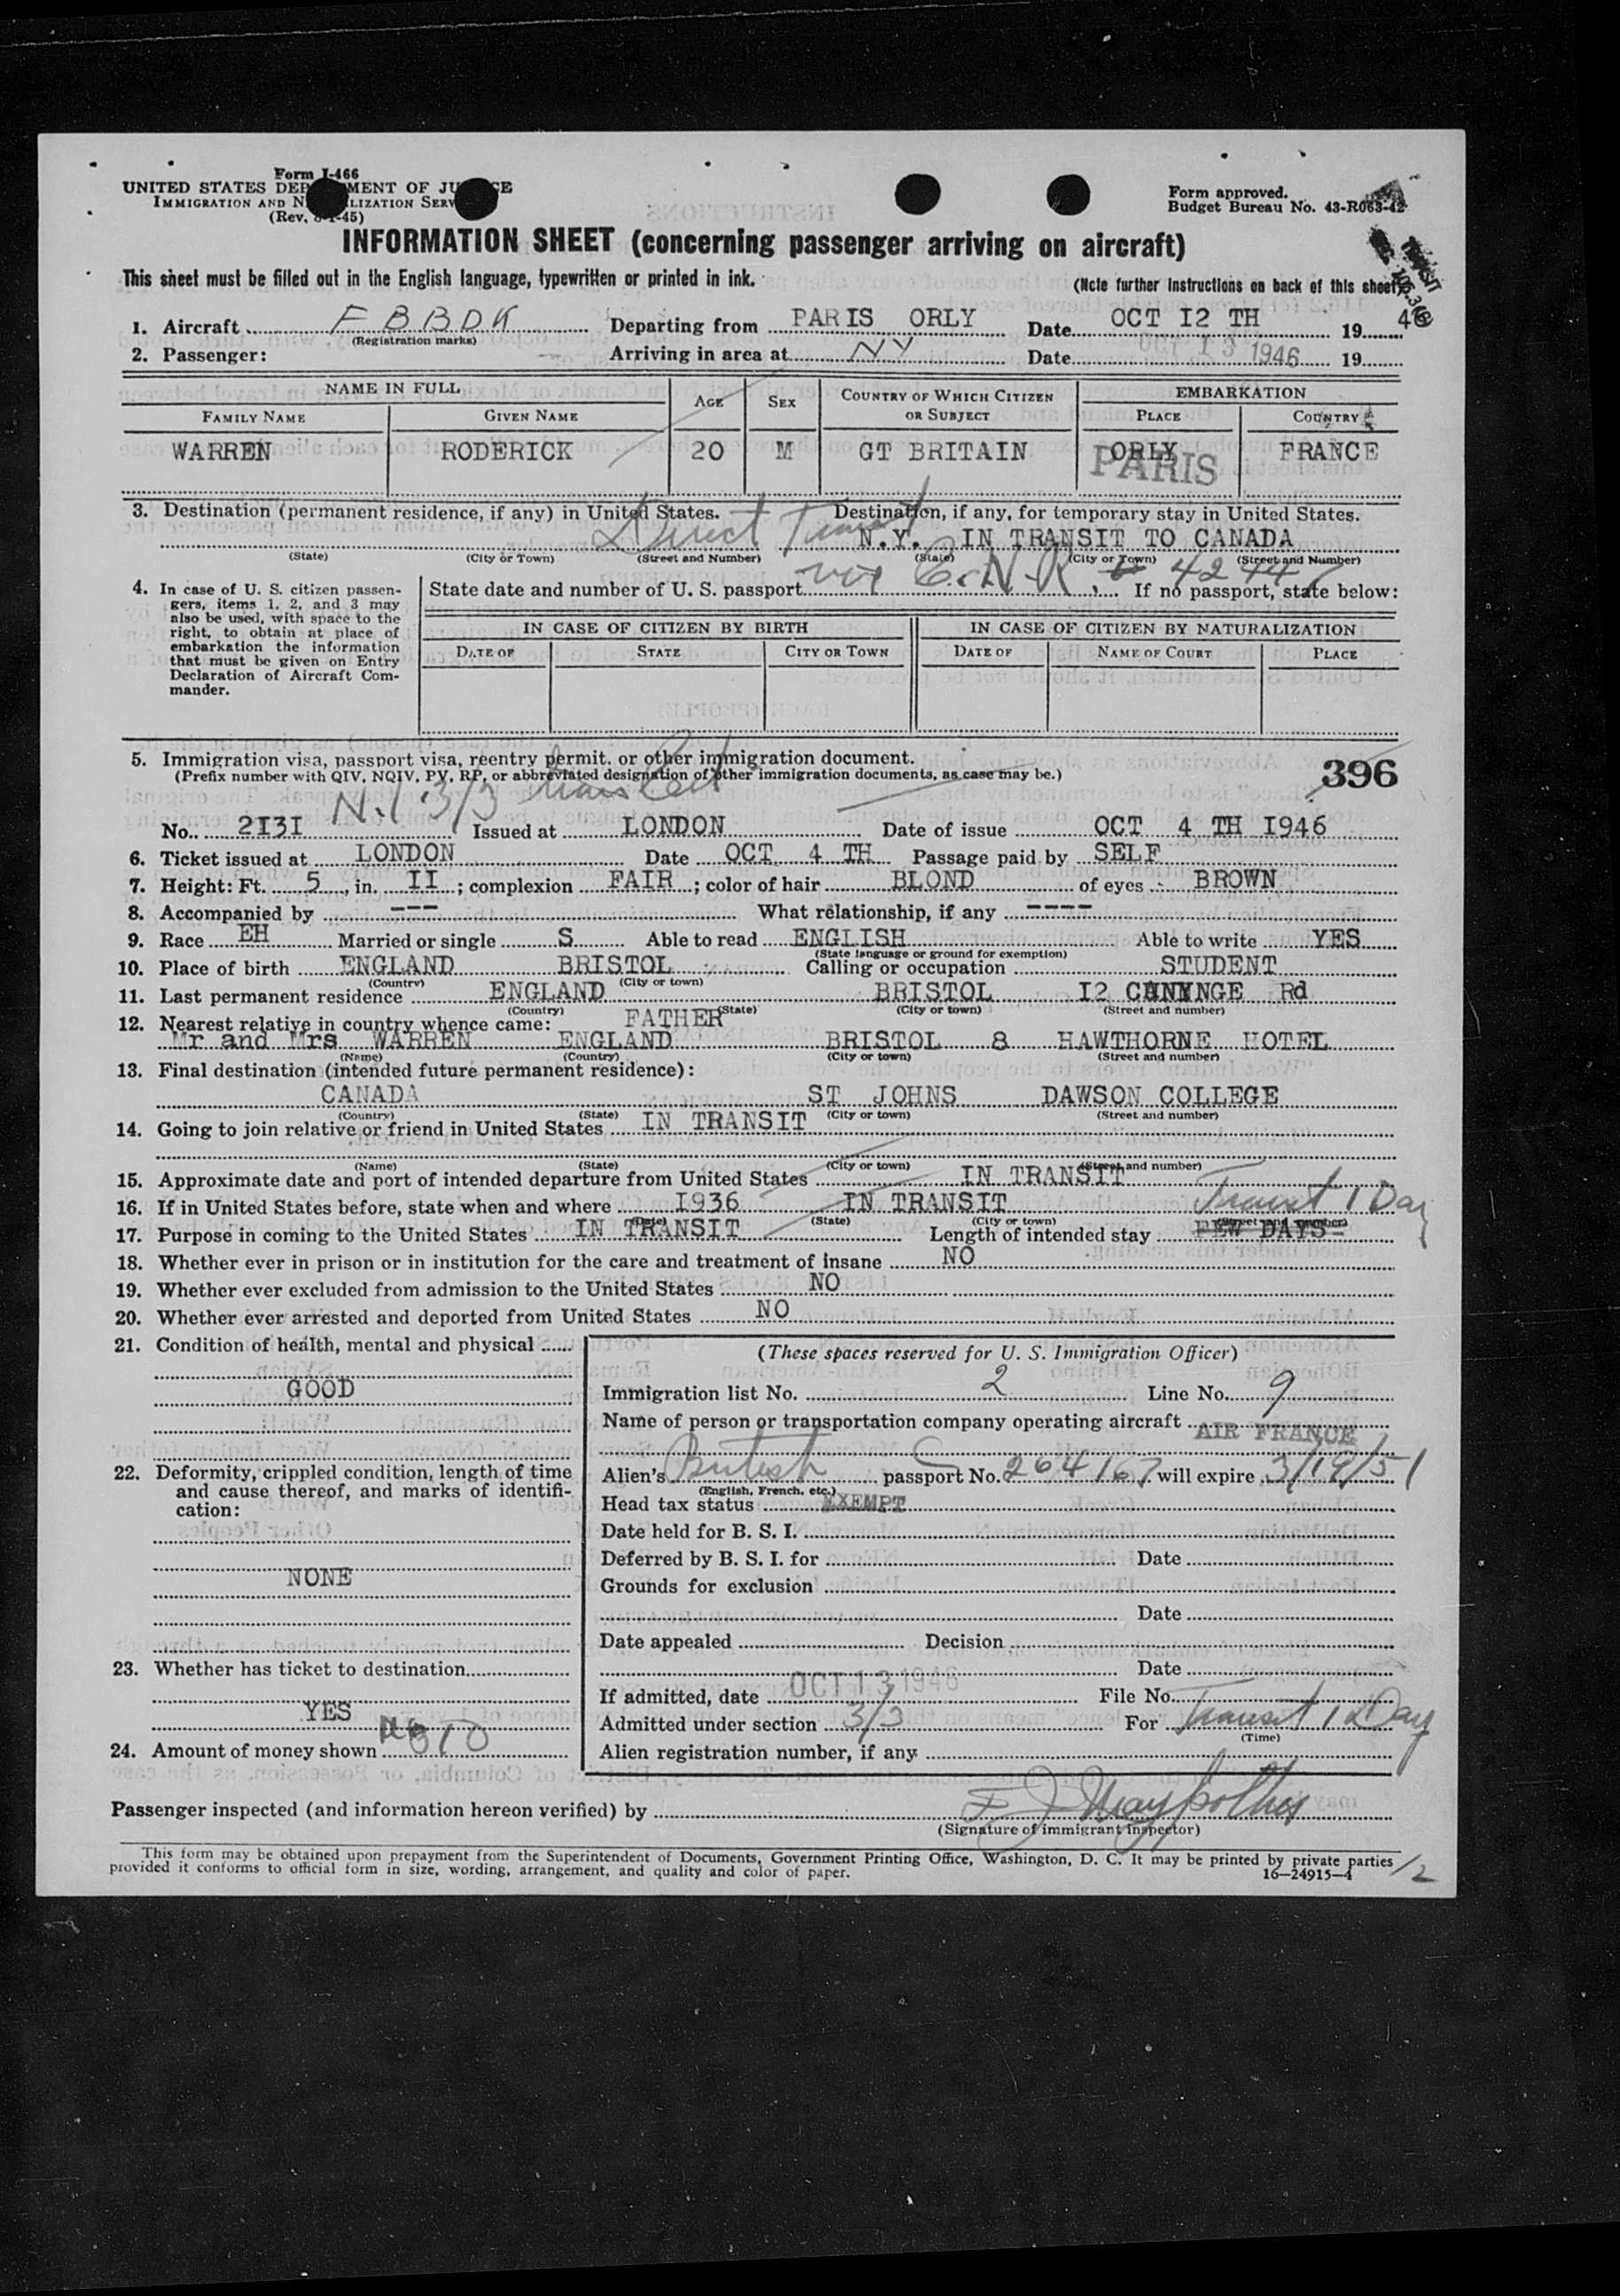 Form I-466
UNITED STATES DEP MENT OF JU CE
IMMIGRATION AND N LIZATION SERV
(Rev. 8-1-45)
Form approved.
Budget Bureau No. 43-R063-42
INFORMATION SHEET (concerning passenger arriving on aircraft)
This sheet must be filled out in the English language, typewritten or printed in ink.
(Note further instructions on back of this sheet)
1. Aircraft F B B D K Departing from PARIS ORLY Date OCT I2 TH 19 46
(Registration marks)
2. Passenger: Arriving in area at NY Date OCT 13 1946 19
NAME IN FULL AGE SEX COUNTRY OF WHICH CITIZEN OR SUBJECT EMBARKATION
FAMILY NAME GIVEN NAME PLACE COUNTRY
WARREN RODERICK 20 M GT BRITAIN ORLY FRANCE
PARIS
3. Destination (permanent residence, if any) in United States. Destination, if any, for temporary stay in United States.
Direct Transit
N.Y. IN TRANSIT TO CANADA
(State) (City or Town) (Street and Number) (State) (City or Town) (Street and Number)
via C.N.R 42447
4. In case of U. S. citizen passen-
gers, items 1, 2, and 3 may
also be used, with space to the
right, to obtain at place of
embarkation the information
that must be given on Entry
Declaration of Aircraft Com-
mander.
State date and number of U. S. passport If no passport, state below:
IN CASE OF CITIZEN BY BIRTH IN CASE OF CITIZEN BY NATURALIZATION
DATE OF STATE CITY OR TOWN DATE OF NAME OF COURT PLACE
5. Immigration visa, passport visa, reentry permit. or other immigration document.
(Prefix number with QIV, NQIV, PV, RP, or abbreviated designation of other immigration documents, as case may be.)
396
N.I 3/3 Trans Cert
No. 2I3I Issued at LONDON Date of issue OCT 4 TH I946
6. Ticket issued at LONDON Date OCT 4 TH Passage paid by SELF
7. Height: Ft. 5, in. II; complexion FAIR; color of hair BLOND of eyes BROWN
8. Accompanied by --- What relationship, if any ----
9. Race EH Married or single S Able to read ENGLISH Able to write YES
(State language or ground for exemption)
10. Place of birth ENGLAND BRISTOL Calling or occupation STUDENT
(Country) (City or town)
11. Last permanent residence ENGLAND BRISTOL I2 CANYNGE Rd
(Country) (State) (City or town) (Street and number)
12. Nearest relative in country whence came: FATHER
Mr and Mrs WARREN ENGLAND BRISTOL 8 HAWTHORNE HOTEL
(Name) (Country) (City or town) (Street and number)
13. Final destination (intended future permanent residence):
CANADA ST JOHNS DAWSON COLLEGE
(Country) (State) (City or town) (Street and number)
14. Going to join relative or friend in United States IN TRANSIT
(Name) (State) (City or town) (Street and number)
15. Approximate date and port of intended departure from United States IN TRANSIT
16. If in United States before, state when and where I936 IN TRANSIT Transit 1 Day
(Date) (State) (City or town) (Street and number)
17. Purpose in coming to the United States IN TRANSIT Length of intended stay FEW DAYS
18. Whether ever in prison or in institution for the care and treatment of insane NO
19. Whether ever excluded from admission to the United States NO
20. Whether ever arrested and deported from United States NO
21. Condition of health, mental and physical
GOOD
22. Deformity, crippled condition, length of time
and cause thereof, and marks of identifi-
cation:
NONE
23. Whether has ticket to destination
YES
24. Amount of money shown
(These spaces reserved for U. S. Immigration Officer)
Immigration list No. 2 Line No. 9
Name of person or transportation company operating aircraft AIR FRANCE
Alien's British passport No. C 264167 will expire 3/19/51
(English, French, etc.)
Head tax status EXEMPT
Date held for B. S. I.
Deferred by B. S. I. for Date
Grounds for exclusion
Date
Date appealed Decision
Date
If admitted, date OCT 13 1946 File No.
Admitted under section 3/3 For Transit 1 Day
(Time)
Alien registration number, if any
Passenger inspected (and information hereon verified) by
(Signature of immigrant inspector)
This form may be obtained upon prepayment from the Superintendent of Documents, Government Printing Office, Washington, D. C. It may be printed by private parties
provided it conforms to official form in size, wording, arrangement, and quality and color of paper. 16—24915-4
1/2